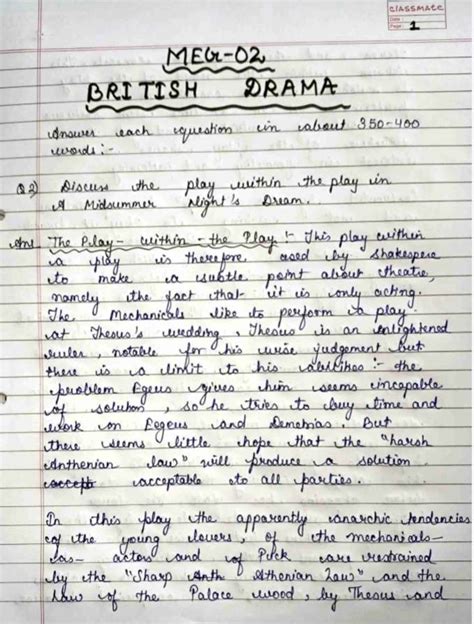 CLASSMATE
Date :
Page : 1
MEG-02
BRITISH DRAMA
Answer each question in about 350-400
words :-
Q2) Discuss the play within the play in
A Midsummer Night's Dream.
Ans The Play-within-the Play :- This play within
a play is therefore used by Shakespere
to make a subtle point about theatre,
namely the fact that it is only acting.
The Mechanicals like to perform a play
at Thesus's wedding. Thesus is an enlightened
ruler, notable for his wise judgement but
there is a limit to his abilities :- the
problem Egeus gives him seems incapable
of solution, so he tries to buy time and
work on Egeus and Demetrias. But
there seems little hope that the "harsh
Anthenian law" will produce a solution
accep acceptable to all parties.
In this play the apparently anarchic tendencies
of the young lovers, of the mechanicals-
as- actors and of Puck are restrained
by the "Sharp Anth Athenian Law" and the
Law of the Palace wood, by Thesus and